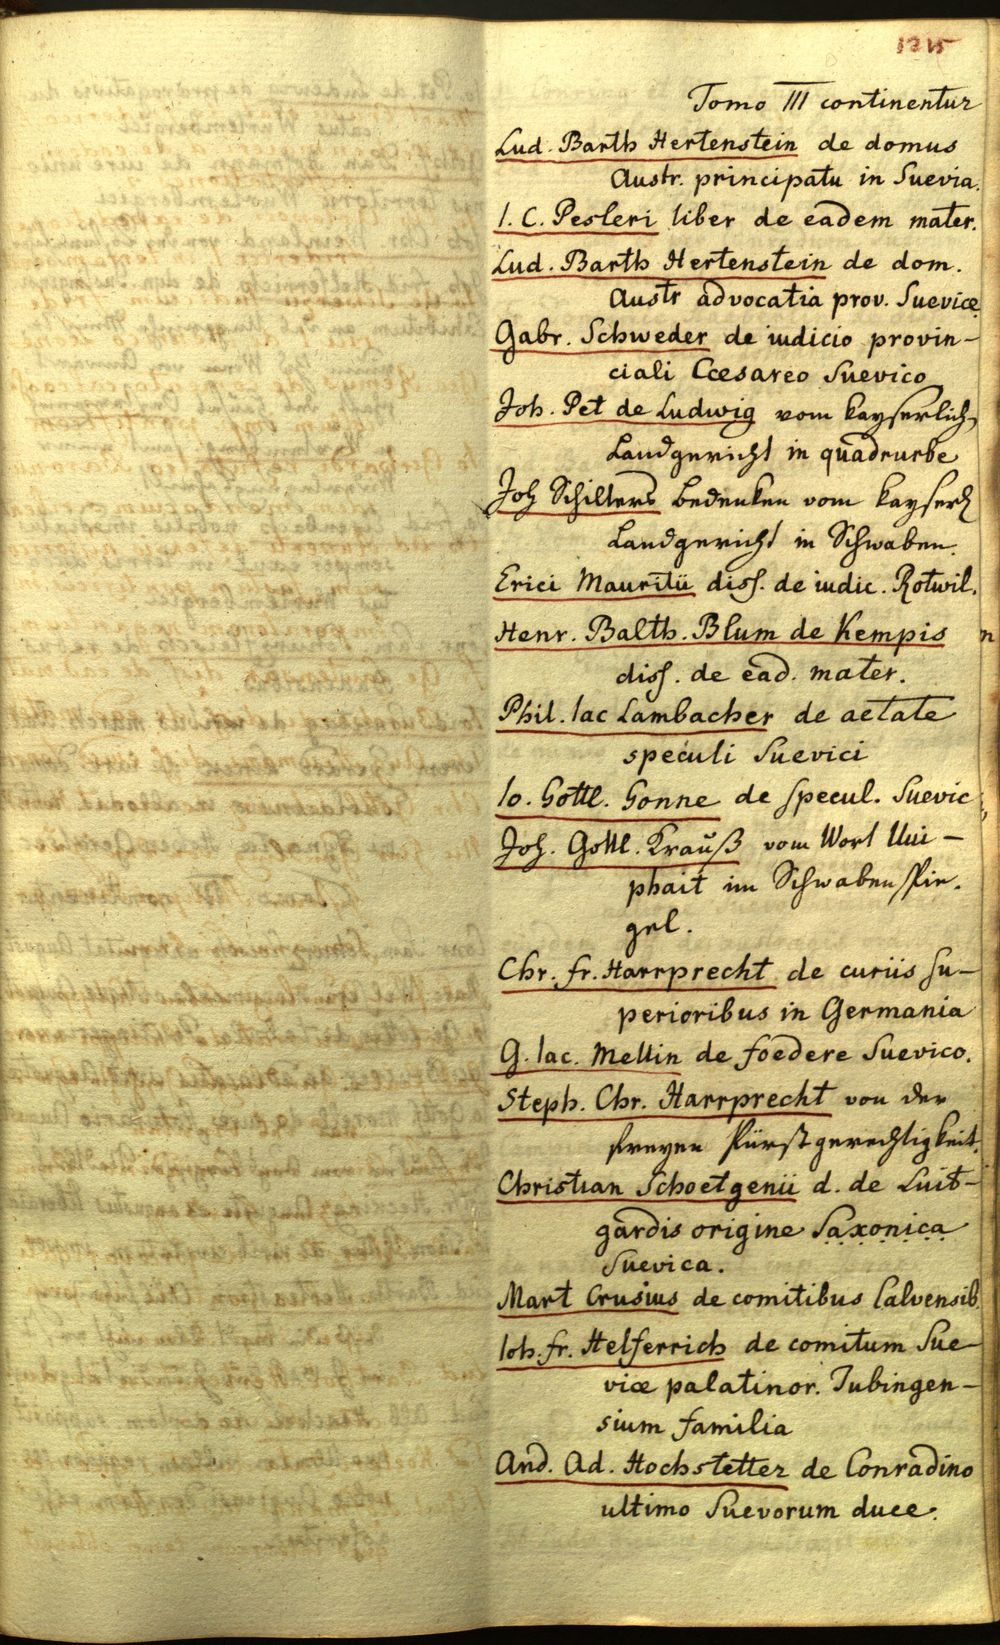 1215
Tomo III continentur
Lud. Barth Hertenstein de domus
Austr. principatu in Suevia.
I. C. Pesleri liber de eadem mater.
Lud. Barth Hertenstein de dom.
Austr advocatia prov. Suevicæ
Gabr. Schweder de iudicio provin-
ciali Cæsareo Suevico
Joh. Pet de Ludwig vom kayserlich
Landgericht in quadrurbe
Joh Schilters bedenken vom kayserl
Landgericht in Schwaben.
Erici Mauritii diss. de iudic. Rotwil.
Henr. Balth. Blum de Kempis
diss. de ead. mater.
Phil. Iac Lambacher de aetate
speculi Suevici
Io. Gottl. Gonne de specul. Suevic
Joh. Gottl. Krauß vom Wort Uui-
phait im Schwaben Spie-
gel.
Chr. fr. Harrprecht de curiis su-
perioribus in Germania
G. Iac. Mellin de foedere Suevico.
Steph. Chr. Harrprecht von der
freyen Pürst gerechtigkeit.
Christian Schoetgenii d. de Luit-
gardis origine Saxonica
Suevica.
Mart Crusius de comitibus Calvensib
Ioh. fr. Helferrich de comitum Sue-
viæ palatinor. Tubingen-
sium familia
And. Ad. Hochstetter de Conradino
ultimo Suevorum duce.